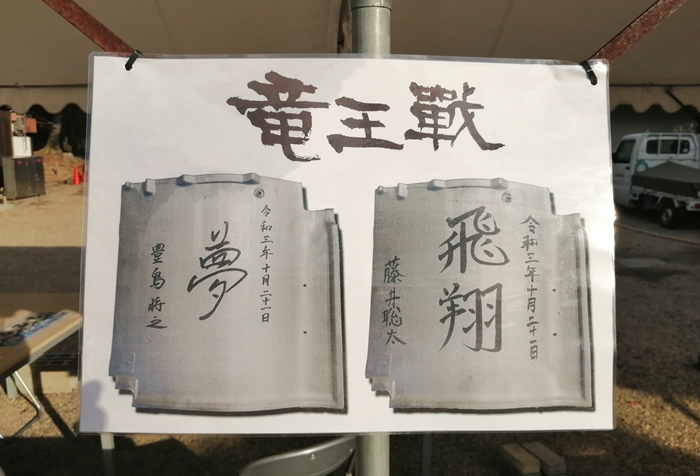 竜王戰
令和三年十月二十一日
夢
豊島将之
令和三年十月二十一日
飛翔
藤井聡太